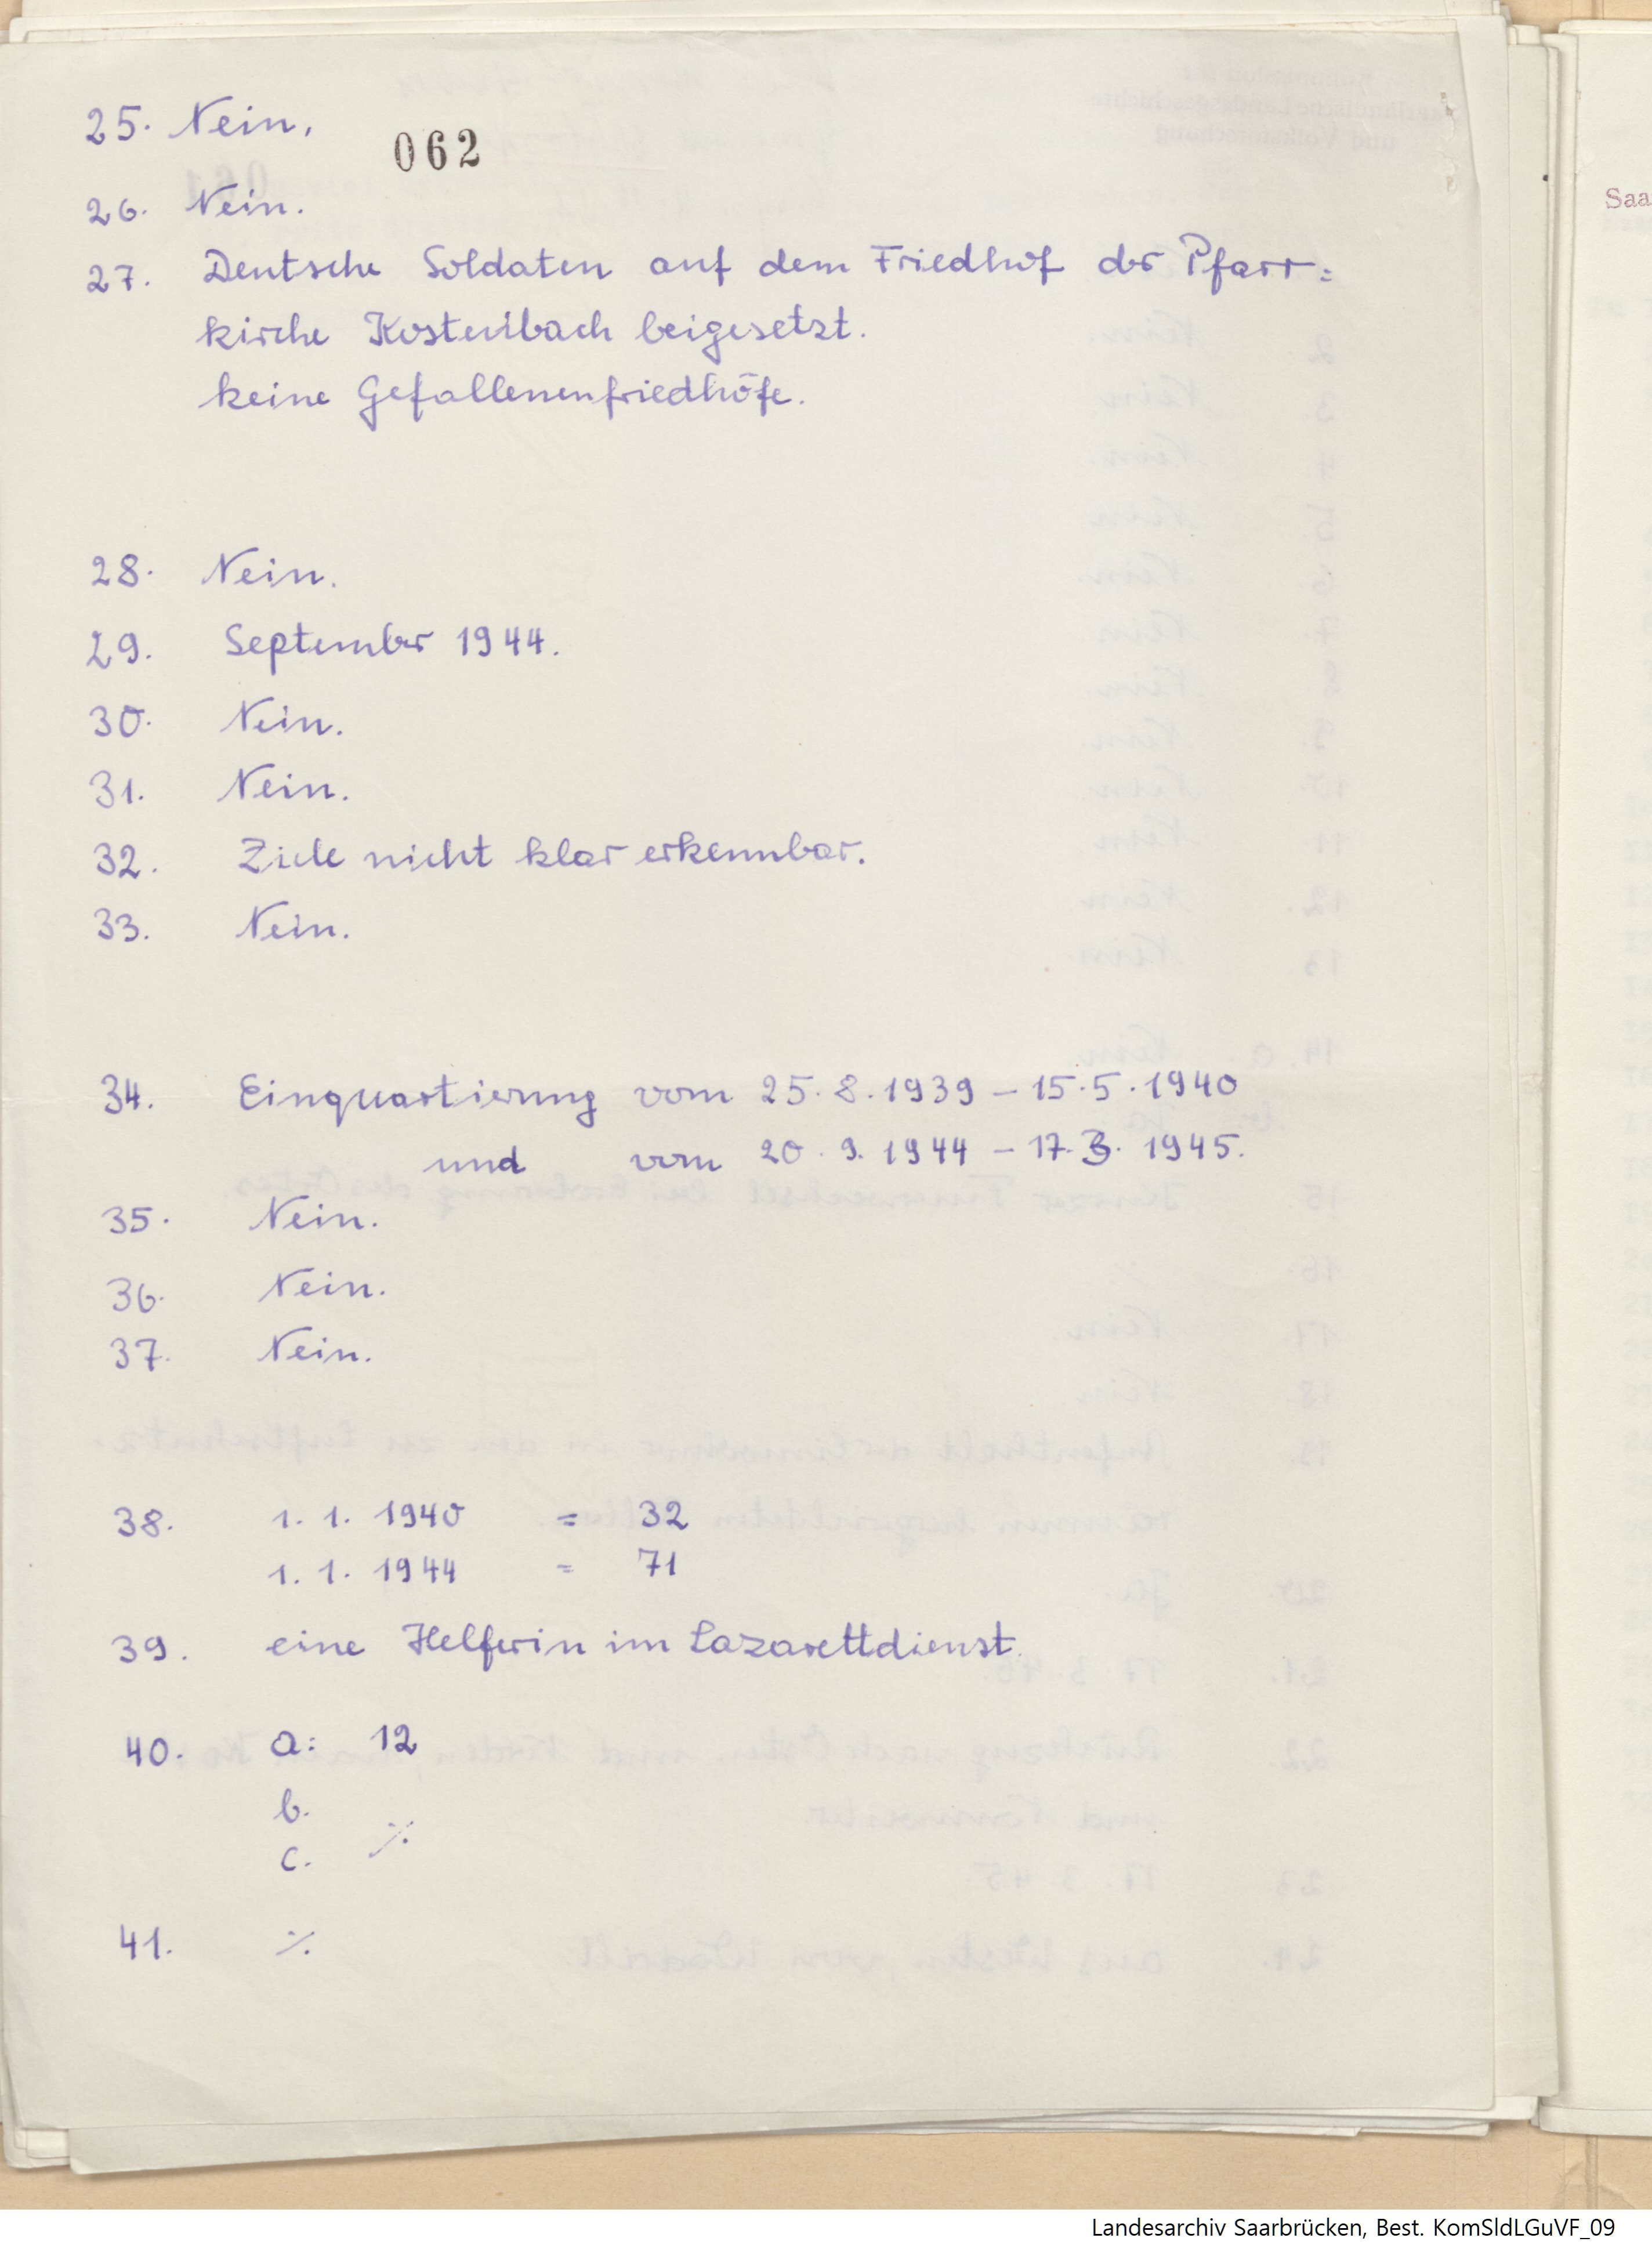 25. Nein.
062
26. Nein.
27. Deutsche Soldaten auf dem Friedhof der Pfarr=
kirche Kostenbach beigesetzt.
keine Gefallenenfriedhöfe.
28. Nein.
29. September 1944.
30. Nein.
31. Nein.
32. Ziele nicht klar erkennbar.
33. Nein.
34. Einquartierung vom 25.8.1939 – 15.5.1940
und vom 20.9.1944 – 17.3.1945.
35. Nein.
36. Nein.
37. Nein.
38. 1.1.1940 = 32
1.1.1944 = 71
39. eine Helferin im Lazarettdienst.
40. a: 12
b.
c. ·/.
41. ·/.
Saa
Landesarchiv Saarbrücken, Best. KomSldLGuVF_09